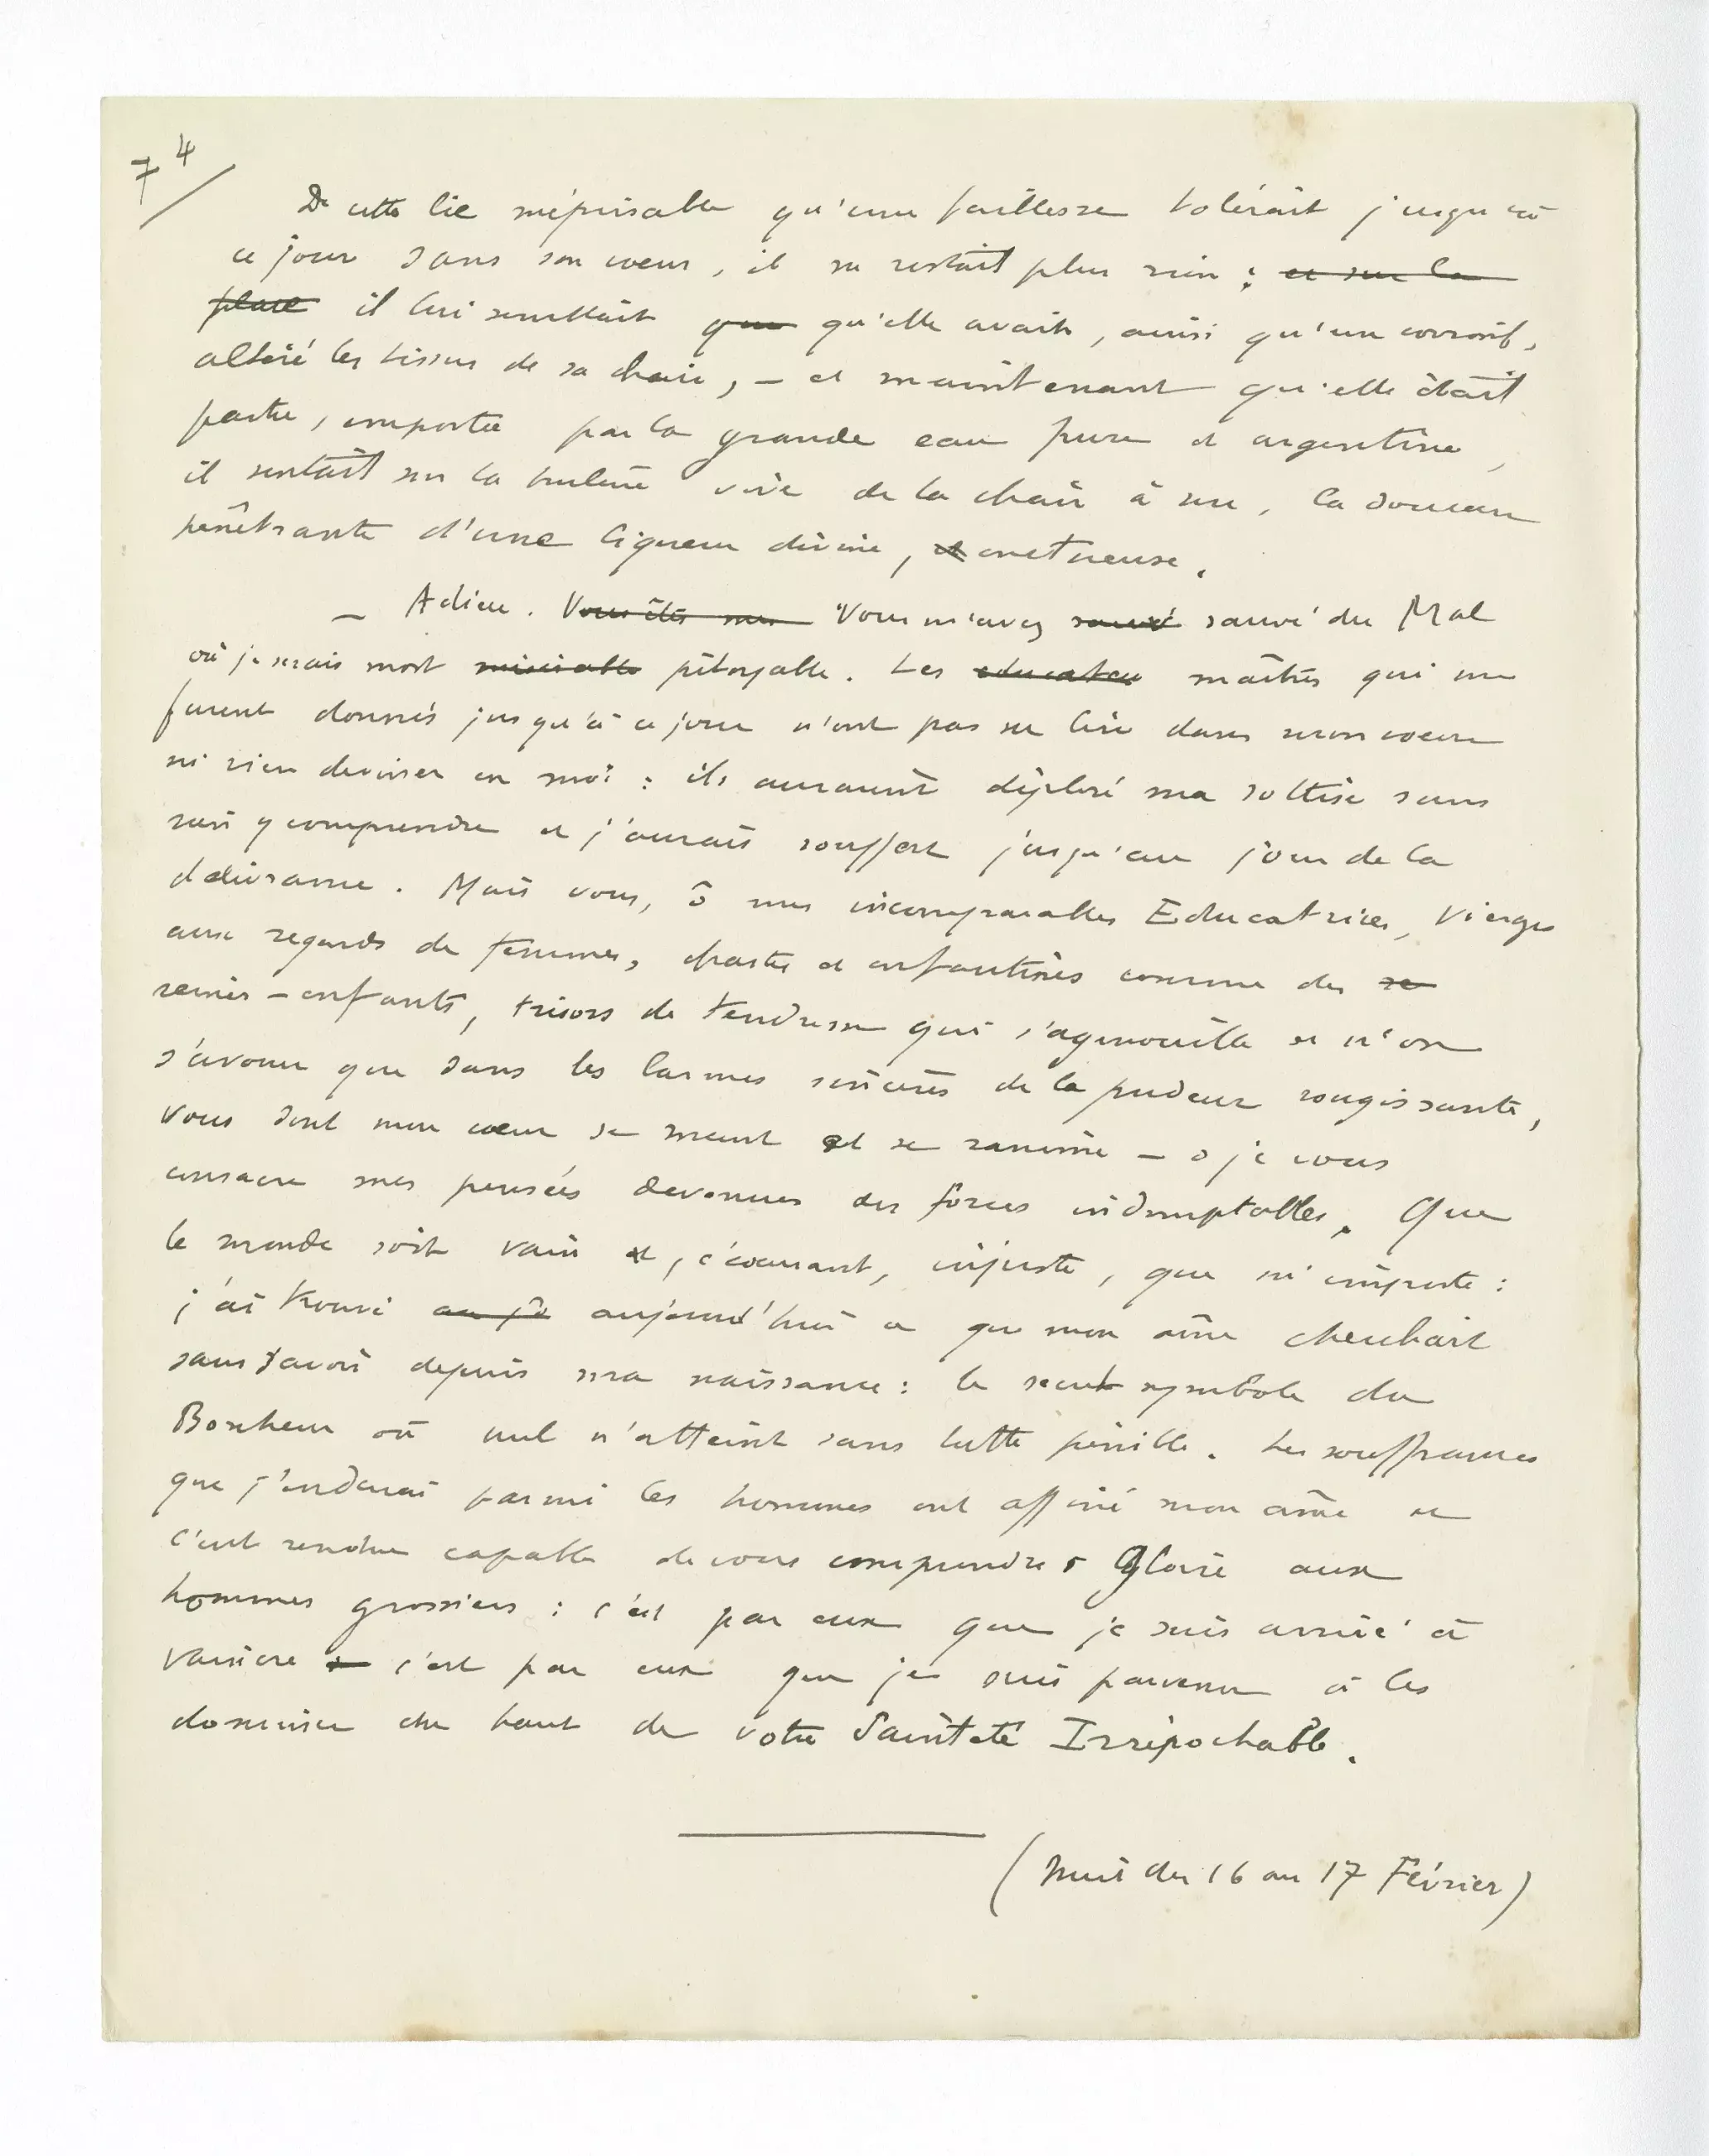 74
De cette lie méprisable qu'une faiblesse tolérait jusqu'à
ce jour dans son coeur, il ne restait plus rien ; et sur la
place il lui semblait que qu'elle avait, ainsi qu'un corrosif,
altéré les tissus de sa chair, – et maintenant qu'elle était
partie, emportée par la grande eau pure et argentine,
il sentait sur la brulure vive de la chair à nu, la douceur
pénétrante d'une liqueur divine, et onctueuse.
– Adieu. Vous êtes mes Vous m'avez sauvé sauvé du Mal
où je serais mort misérable pitoyable. Les educateu maîtres qui me
furent donnés jusqu'à ce jour n'ont pas su lire dans mon coeur
ni rien deviner en moi : ils auraient déploré ma sottise sans
rien y comprendre et j'aurais souffert jusqu'au jour de la
délivrance. Mais vous, ô mes incomparables Educatrices, Vierges
aux regards de femmes, chastes et enfantines comme des re
reines-enfants, trésors de tendresse qui s'agenouille et n'ose
s'avouer que dans les larmes sincères de la pudeur rougissante,
vous dont mon coeur se meurt et se ranime – ô je vous
consacre mes pensées devenues des forces indomptables. Que
le monde soit vain et, écoeurant, injuste, que m'importe :
j'ai trouvé aujourd'hui ce que mon âme cherchait
sans savoir depuis ma naissance : le secret symbole du
Bonheur où nul n'atteint sans lutte pénible. Les souffrances
que j'endurai parmi les hommes ont affiné mon âme et
l'ont rendue capable de vous comprendre. Gloire aux
hommes grossiers : c'est par eux que je suis arrivé à
vaincre c'est par eux que je suis parvenu à les
dominer du haut de votre Sainteté Irréprochable.
(Nuit du 16 au 17 Février)